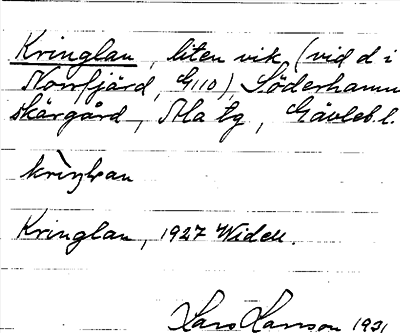 Kringlan, liten vik (vid d i
Norrfjärd, G110), Söderhamn
skärgård, Ala tg, Gävleb. l.
Kringlan, 1927 Widell.
Lars Hanson 1931